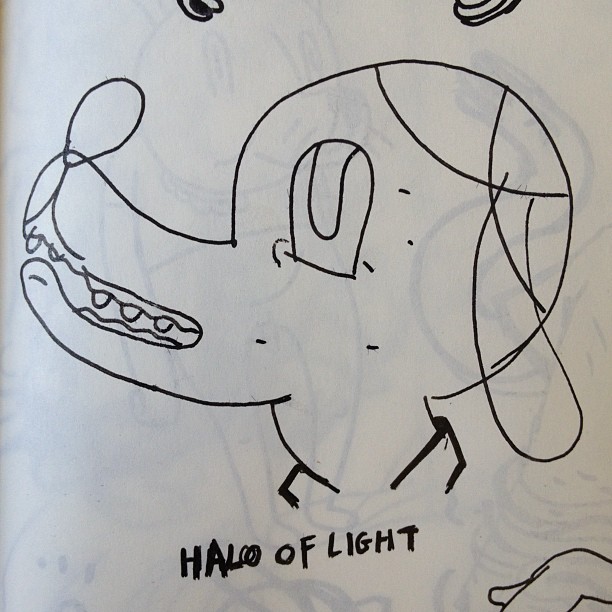 HALO OF LIGHT